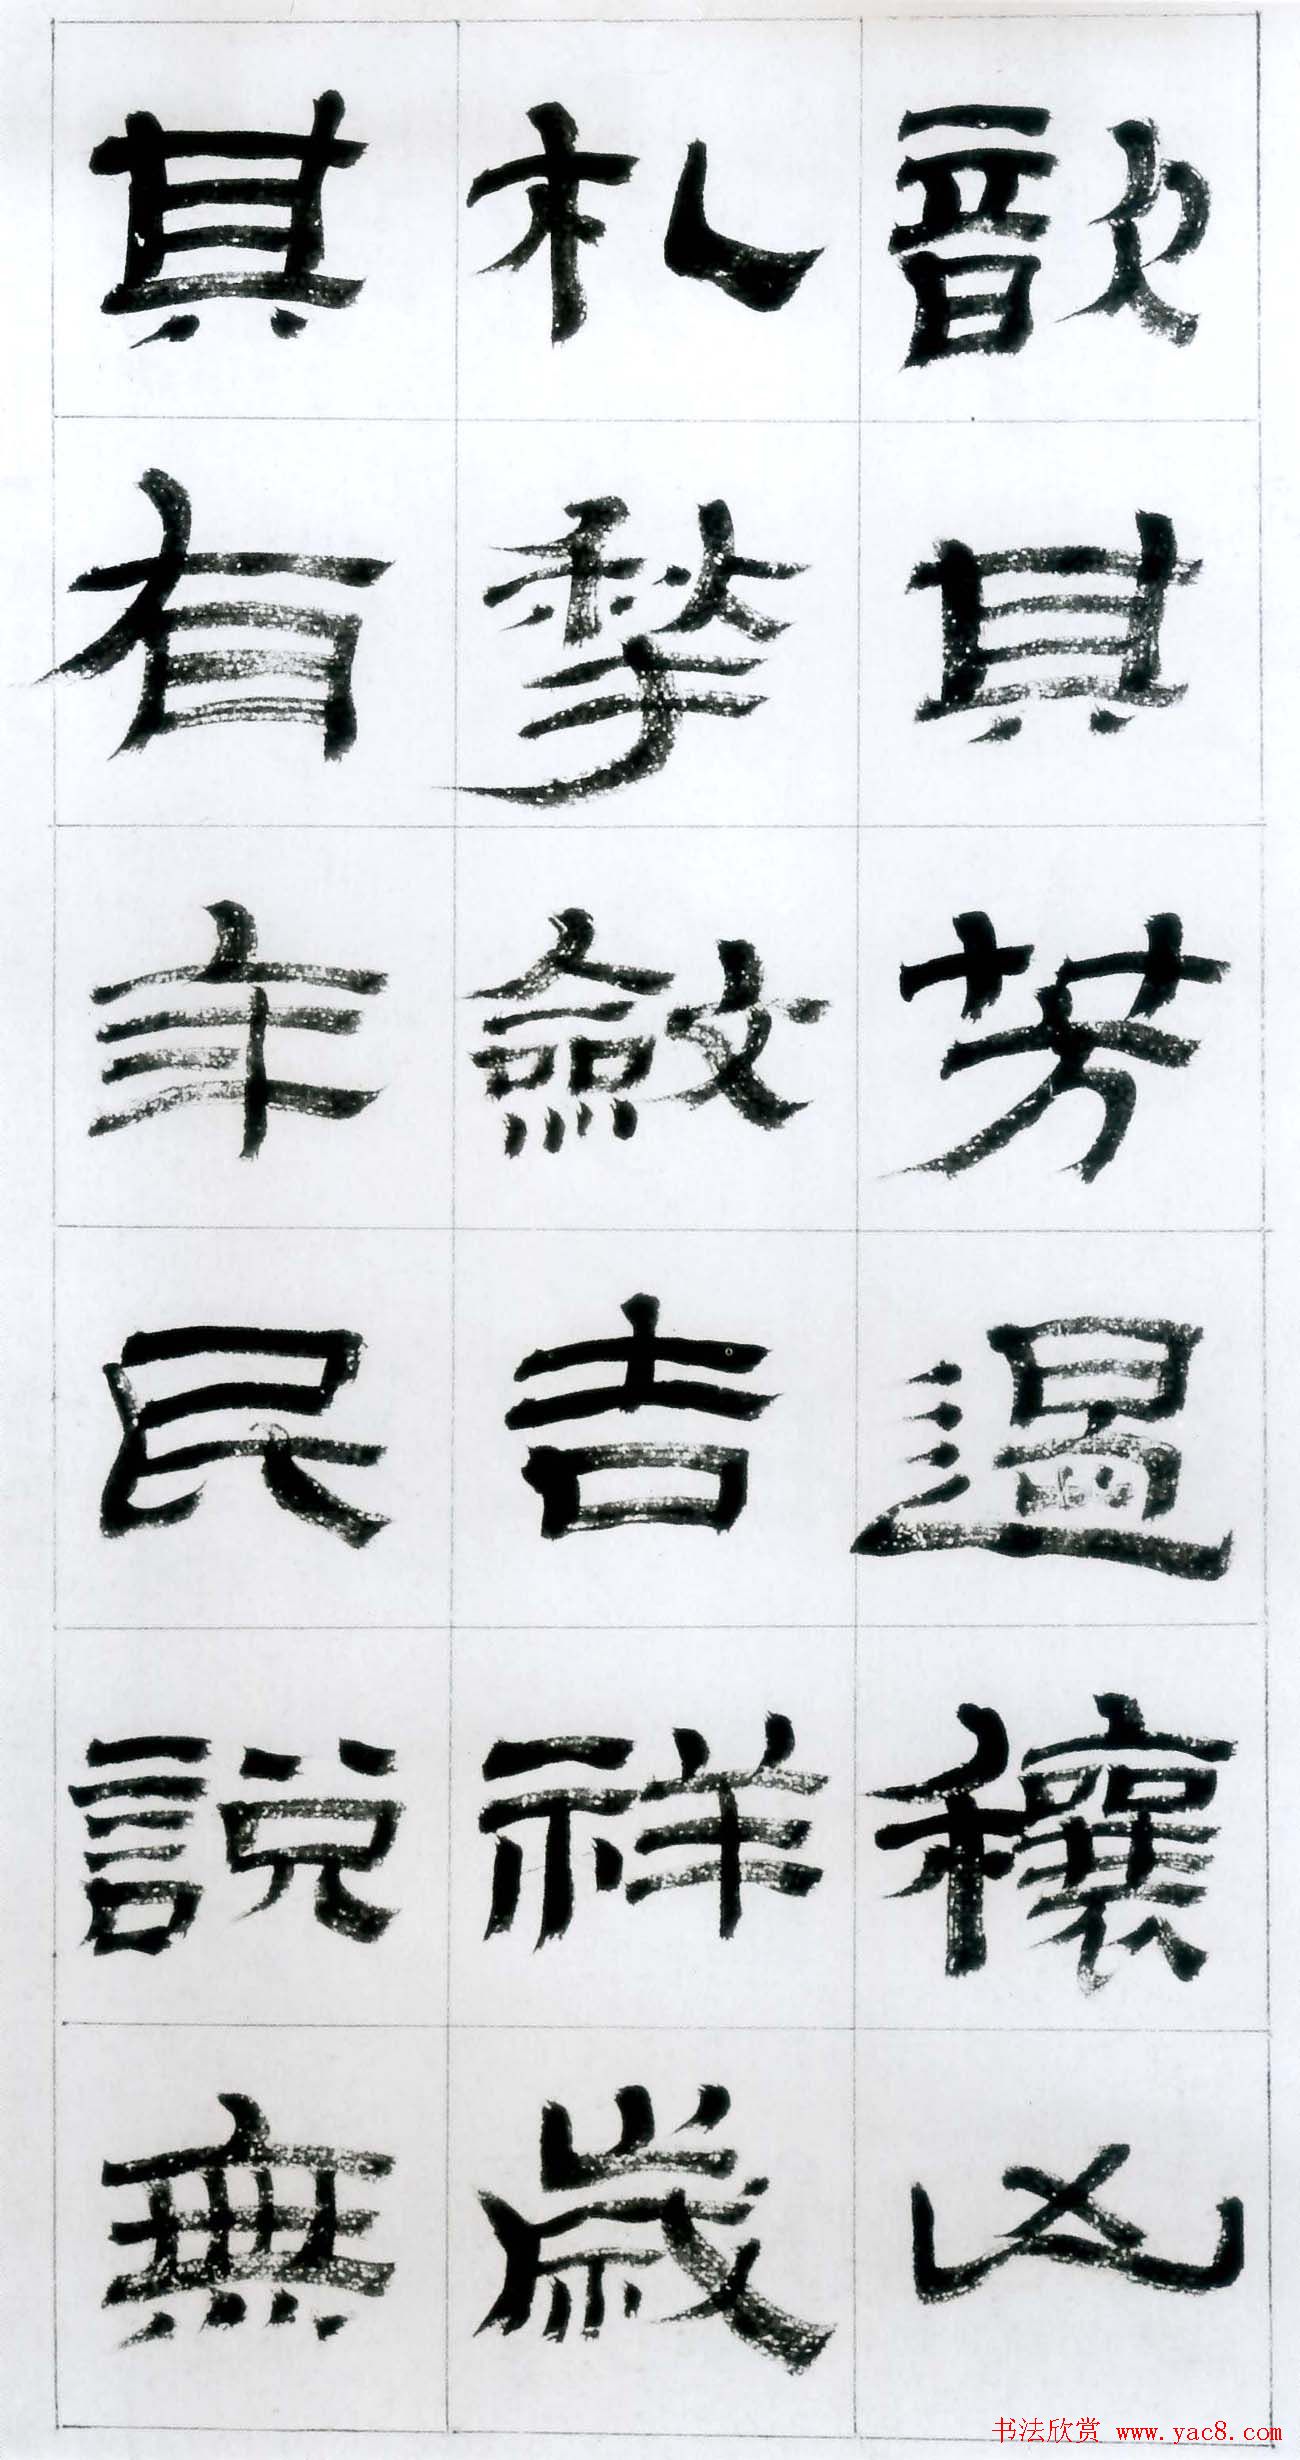 歆其芳遏穰凶
札揫斂吉祥歲
其有年民說無
书法欣赏 www.yac8.com